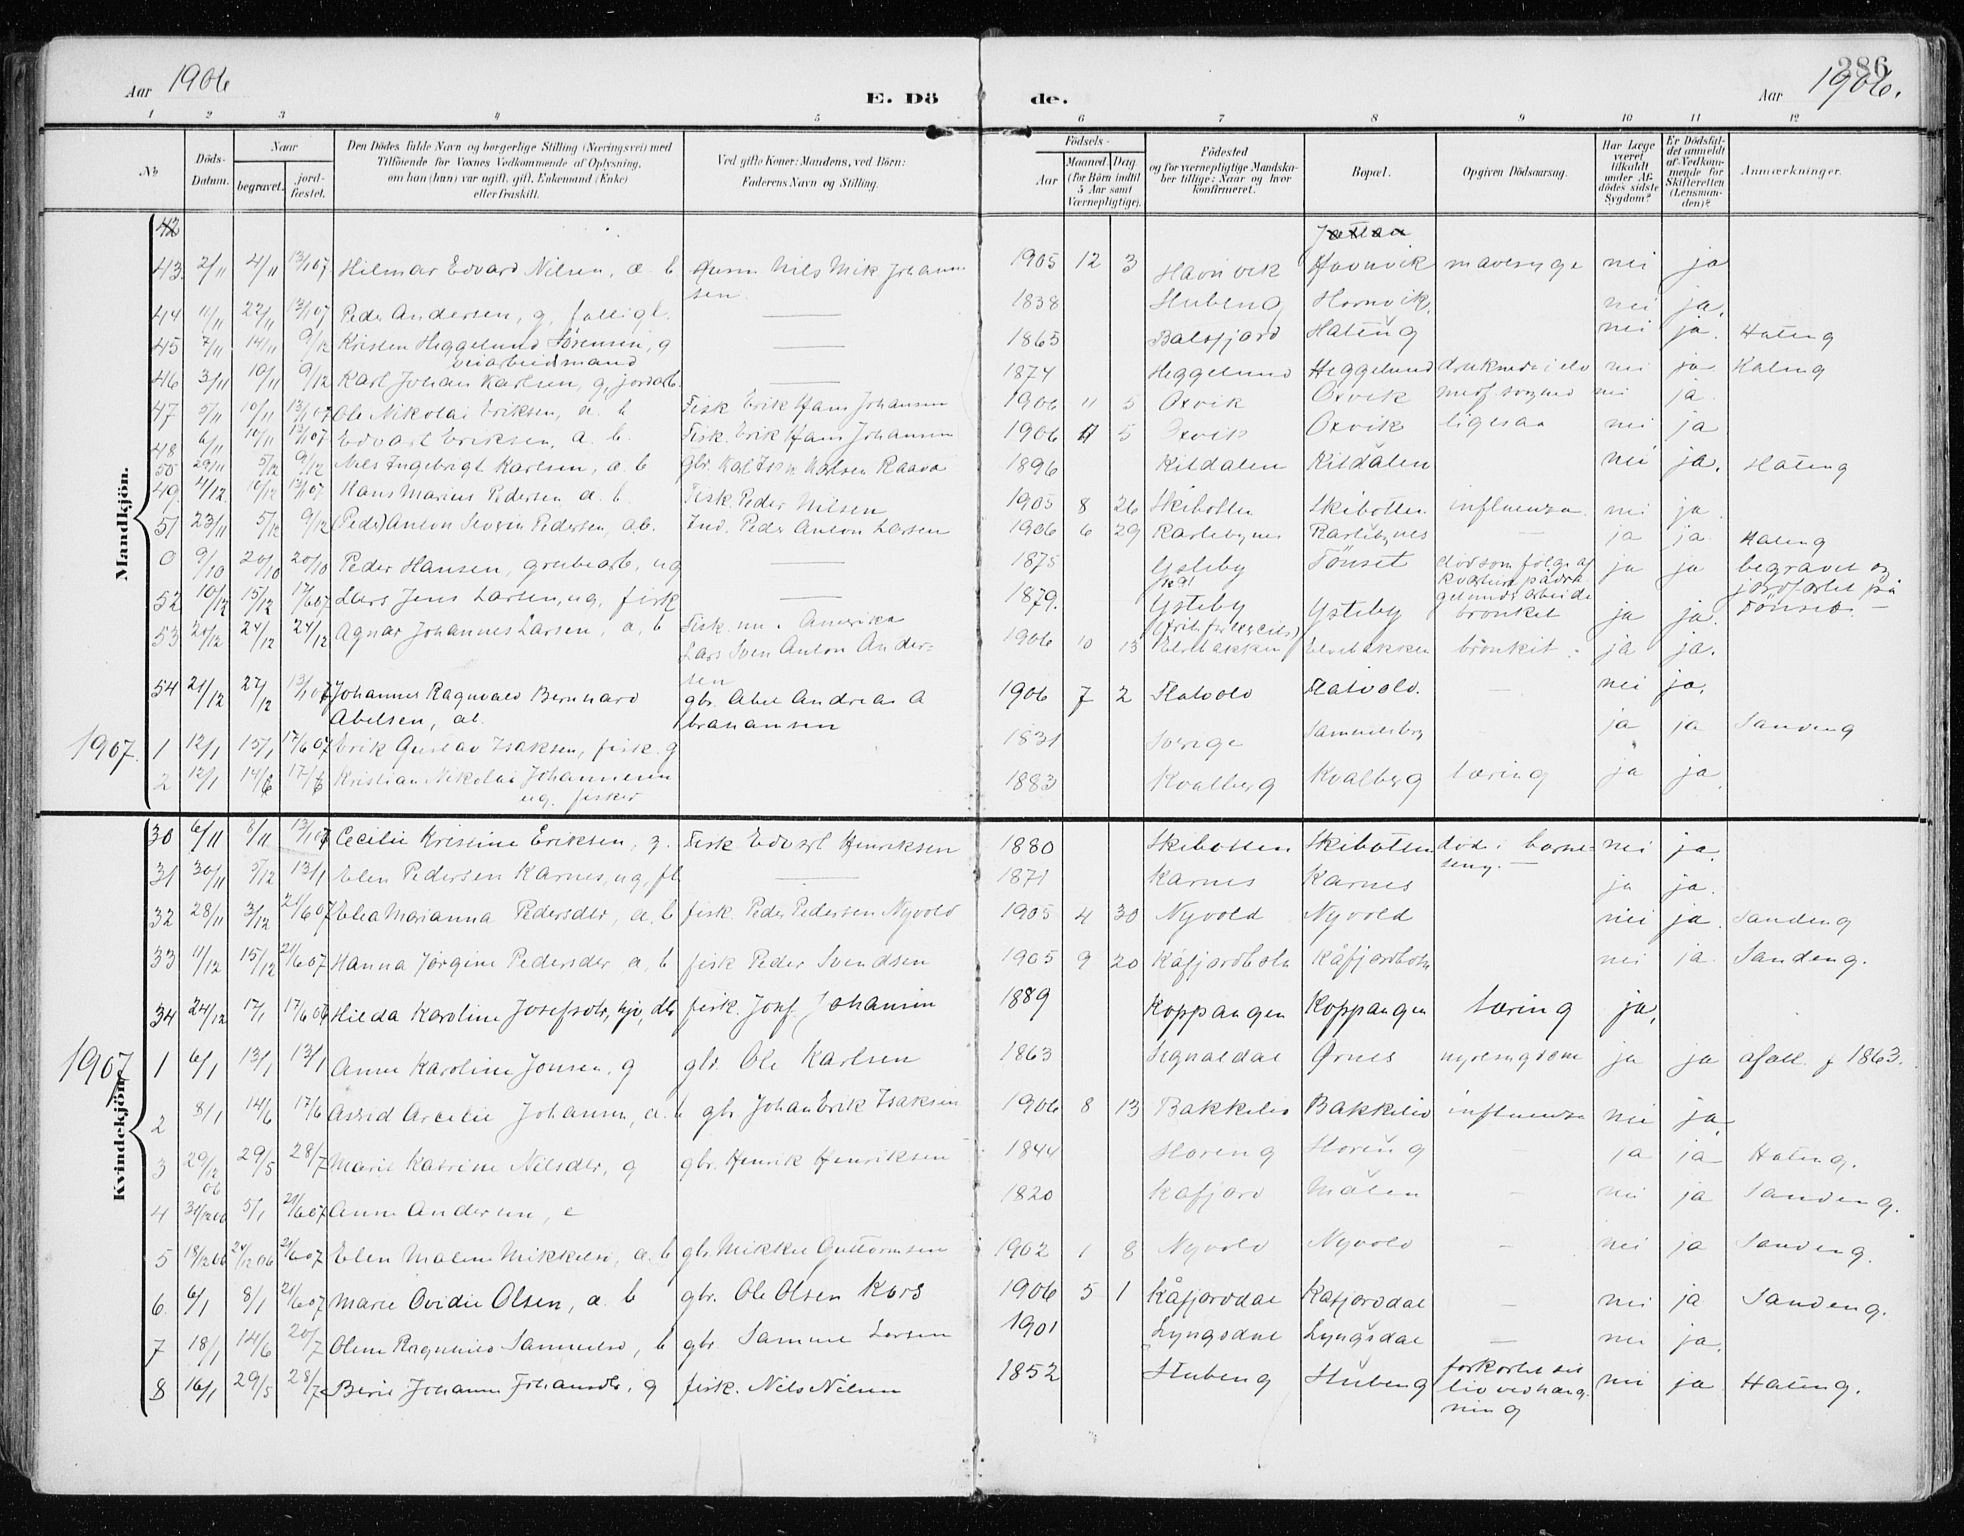 Aar 1906
E. Dö de.
286
Aar 1906.
1 2 3 4 5 6 7 8 9 10 11 12
No
Döds-Datum.
Naar
begravet.
jord-fæstet.
Den Dödes fulde Navn og borgerlige Stilling (Næringsvei) med Tilföiende for Voxnes Vedkommende af Oplysning, om han (hun) var ugift, gift, Enkemand (Enke) eller fraskilt.
Ved gifte Koner: Mandens, ved Börn: Faderens Navn og Stilling.
Födsels-
Aar
Maaned. Dag. (for Börn indtil 5 Aar samt Værnepligtige).
Födested og for værnepligtige Mandskaber tillige: Naar og hvor konfirmeret.
Bopæl.
Opgiven Dödsaarsag.
Har Læge været tilkaldt under Afdödes sidste Sygdom?
Er Dödsfaldet anmeldt af Vedkommende for Skifteretten (Lensmanden)?
Anmærkninger.
Mandkjön.
42
43. 2/11 4/11 13/1 07 Hilmar Edvard Nilsen, a. b Nils Mik Johannsen. 1905 12 3 Havnvik Havnvik mavesyge nei ja
44 11/11 22/11 13/1 07 Peder Andersen, g, fattigl. — 1838 Stubeng Hornvik, nei ja.
45 7/11 14/11 9/12 Kristen Heggelund Sörensen, g veiarbeidsmand — 1865 Balsfjord Hateng nei ja. Hateng
46 3/11 10/11 9/12 Karl Johan Karlsen, g, jordarb. — 1874 Heggelund Heggelund druknede i elv nei ja Hateng
47 5/11 10/11 13/1 07 Ole Nikolai Eriksen, a. b Fisk Erik Hans Johansen 1906 11 5 Oxvik Oxvik nei ja
48 6/11 10/11 13/1 07 Edvart Eriksen, a. b. Fisk. Erik Hans Johansen 1906 11 5 Oxvik Oxvik ligesaa nei ja
50 29/11 5/12 9/12 Nils Ingebrigt Karlsen, a. b gbr. Karlsen Raavo 1896 Kildalen Kildalen nei ja. Hateng
49 4/12 10/12 13/1 07 Hans Marius Pedersen a. b. Fisk. Peder Nilsen 1905 8 26 Skibotten Skibotten influenza nei ja
51 23/11 5/12 9/12 (Peder) Anton Severin Pedersen, ab. Ind. Peder Anton Larsen 1906 6 29 Karlebynes Karlebynes — ja ja Hateng
0 9/10 20/10 20/10 Peder Hansen, grubearb, ug — 1875 Ysteby Tönset död som følge af ja ja begravet og jordfæstet på Tönset —
52 10/12 15/12 17/6 07 Lars Jens Larsen, ug, fisk — 1879. Ysteby Ysteby bronkit ja ja.
53 20/12 24/12 24/12 Agnar Johannes Larsen, a. b Fisk. nu i Amerika Lars Sven Anton Andersen 1906 10 13 Elvebakken Elvebakken bronkit ja ja.
54 21/12 27/12 13/1 07 Johannes Ragnvald Bernhard Abelsen, ab. gbr. Abel Andreas Abrahamsen 1906 7 2 Flatvold Flatvold. — nei ja.
1907. 1 12/1 15/1 17/6 07 Erik Gustav Isaksen, fisk. g 1831 Sverige Sammelsberg ja ja Sandeng
2 12/1 14/6 17/6 Kristian Nikolai Johannesen ug. fisker 1883 Kvalberg Kvalberg tæring ja ja
Kvindekjön.
30 6/11 8/11 13/1 07 Cecilie Kristine Eriksen, g. Fisk Edvart Henriksen 1880 Skibotten Skibotten död i barnseng. — nei ja.
31 30/11 5/12 13/1 Elen Pedersen Karnes, ug, fl — 1871 Karnes Karnes ja ja.
32 28/11 3/12 21/6 07 Elea Marianna Pedersdtr, a. b fisk. Peder Pedersen Nyvold 1905 4 30 Nyvold Nyvold nei ja. Sandeng
33 11/12 15/12 21/6 07 Hanna Jörgine Pedersdtr, a, b fisk Peder Svendsen 1905 9 20 Kåfjordbotn Kåfjordbotn nei ja. Sandeng.
34 24/12 17/1 17/6 07 Hilda Karoline Josefsdtr, hjv, dtr fisk. Josef Johansen 1889 Koppangen Koppangen tæring ja,
1907 1 6/1 13/1 13/1 Anne Karoline Jonsen, g gbr. Ole Karlsen 1863 Signaldal Ørnes nyresygdom ja ja afall. f 1863.
2 8/1 14/6 17/6 Astrid Arcelie Johansen, a. b gbr Johan Erik Isaksen 1906 8 13 Bakkeliv Bakkeliv influenza nei ja.
3 29/12 06 29/5 28/7 Marie Katrine Nilsdtr, g gbr. Henrik Henriksen 1844 Horeng Horeng ja ja Hateng.
4 31/12 06 5/1 21/6 07 Anne Andersen, e 1820 Kåfjord Målen — nei ja Sandeng.
5 18/12 06 24/12 06 21/6 07 Elen Maline Mikkelsd, a. b gbr Mikkel Guttormsen 1902 1 8 Nyvold Nyvold — nei ja Sandeng.
6. 6/1 8/1 21/6 07 Marie Ovidie Olsen, a. b gbr. Ole Olsen Kors 1906 5 1 Kåfjorddal Kåfjorddal — nei ja Sandeng.
7 18/1 14/6 20/7 Oline Ragnhild Samuelsd, b gbr. Samuel Larsen 1901 Lyngsdal Lyngsdal — nei ja.
8 16/1 29/5 28/7 Berit Johanne Johansdtr. g fisk. Nils Nilsen 1852 Stubeng Stubeng forkortet sit liv ved hængning nei ja Hateng.